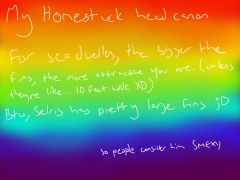 My Homestuck headcanon
For seadwellers, the bigger the
fins, the more attractive you are. (unless
theyre like... 10 feet wide XD)
Btw, Selris has pretty large fins ;D
so people consider him smexy